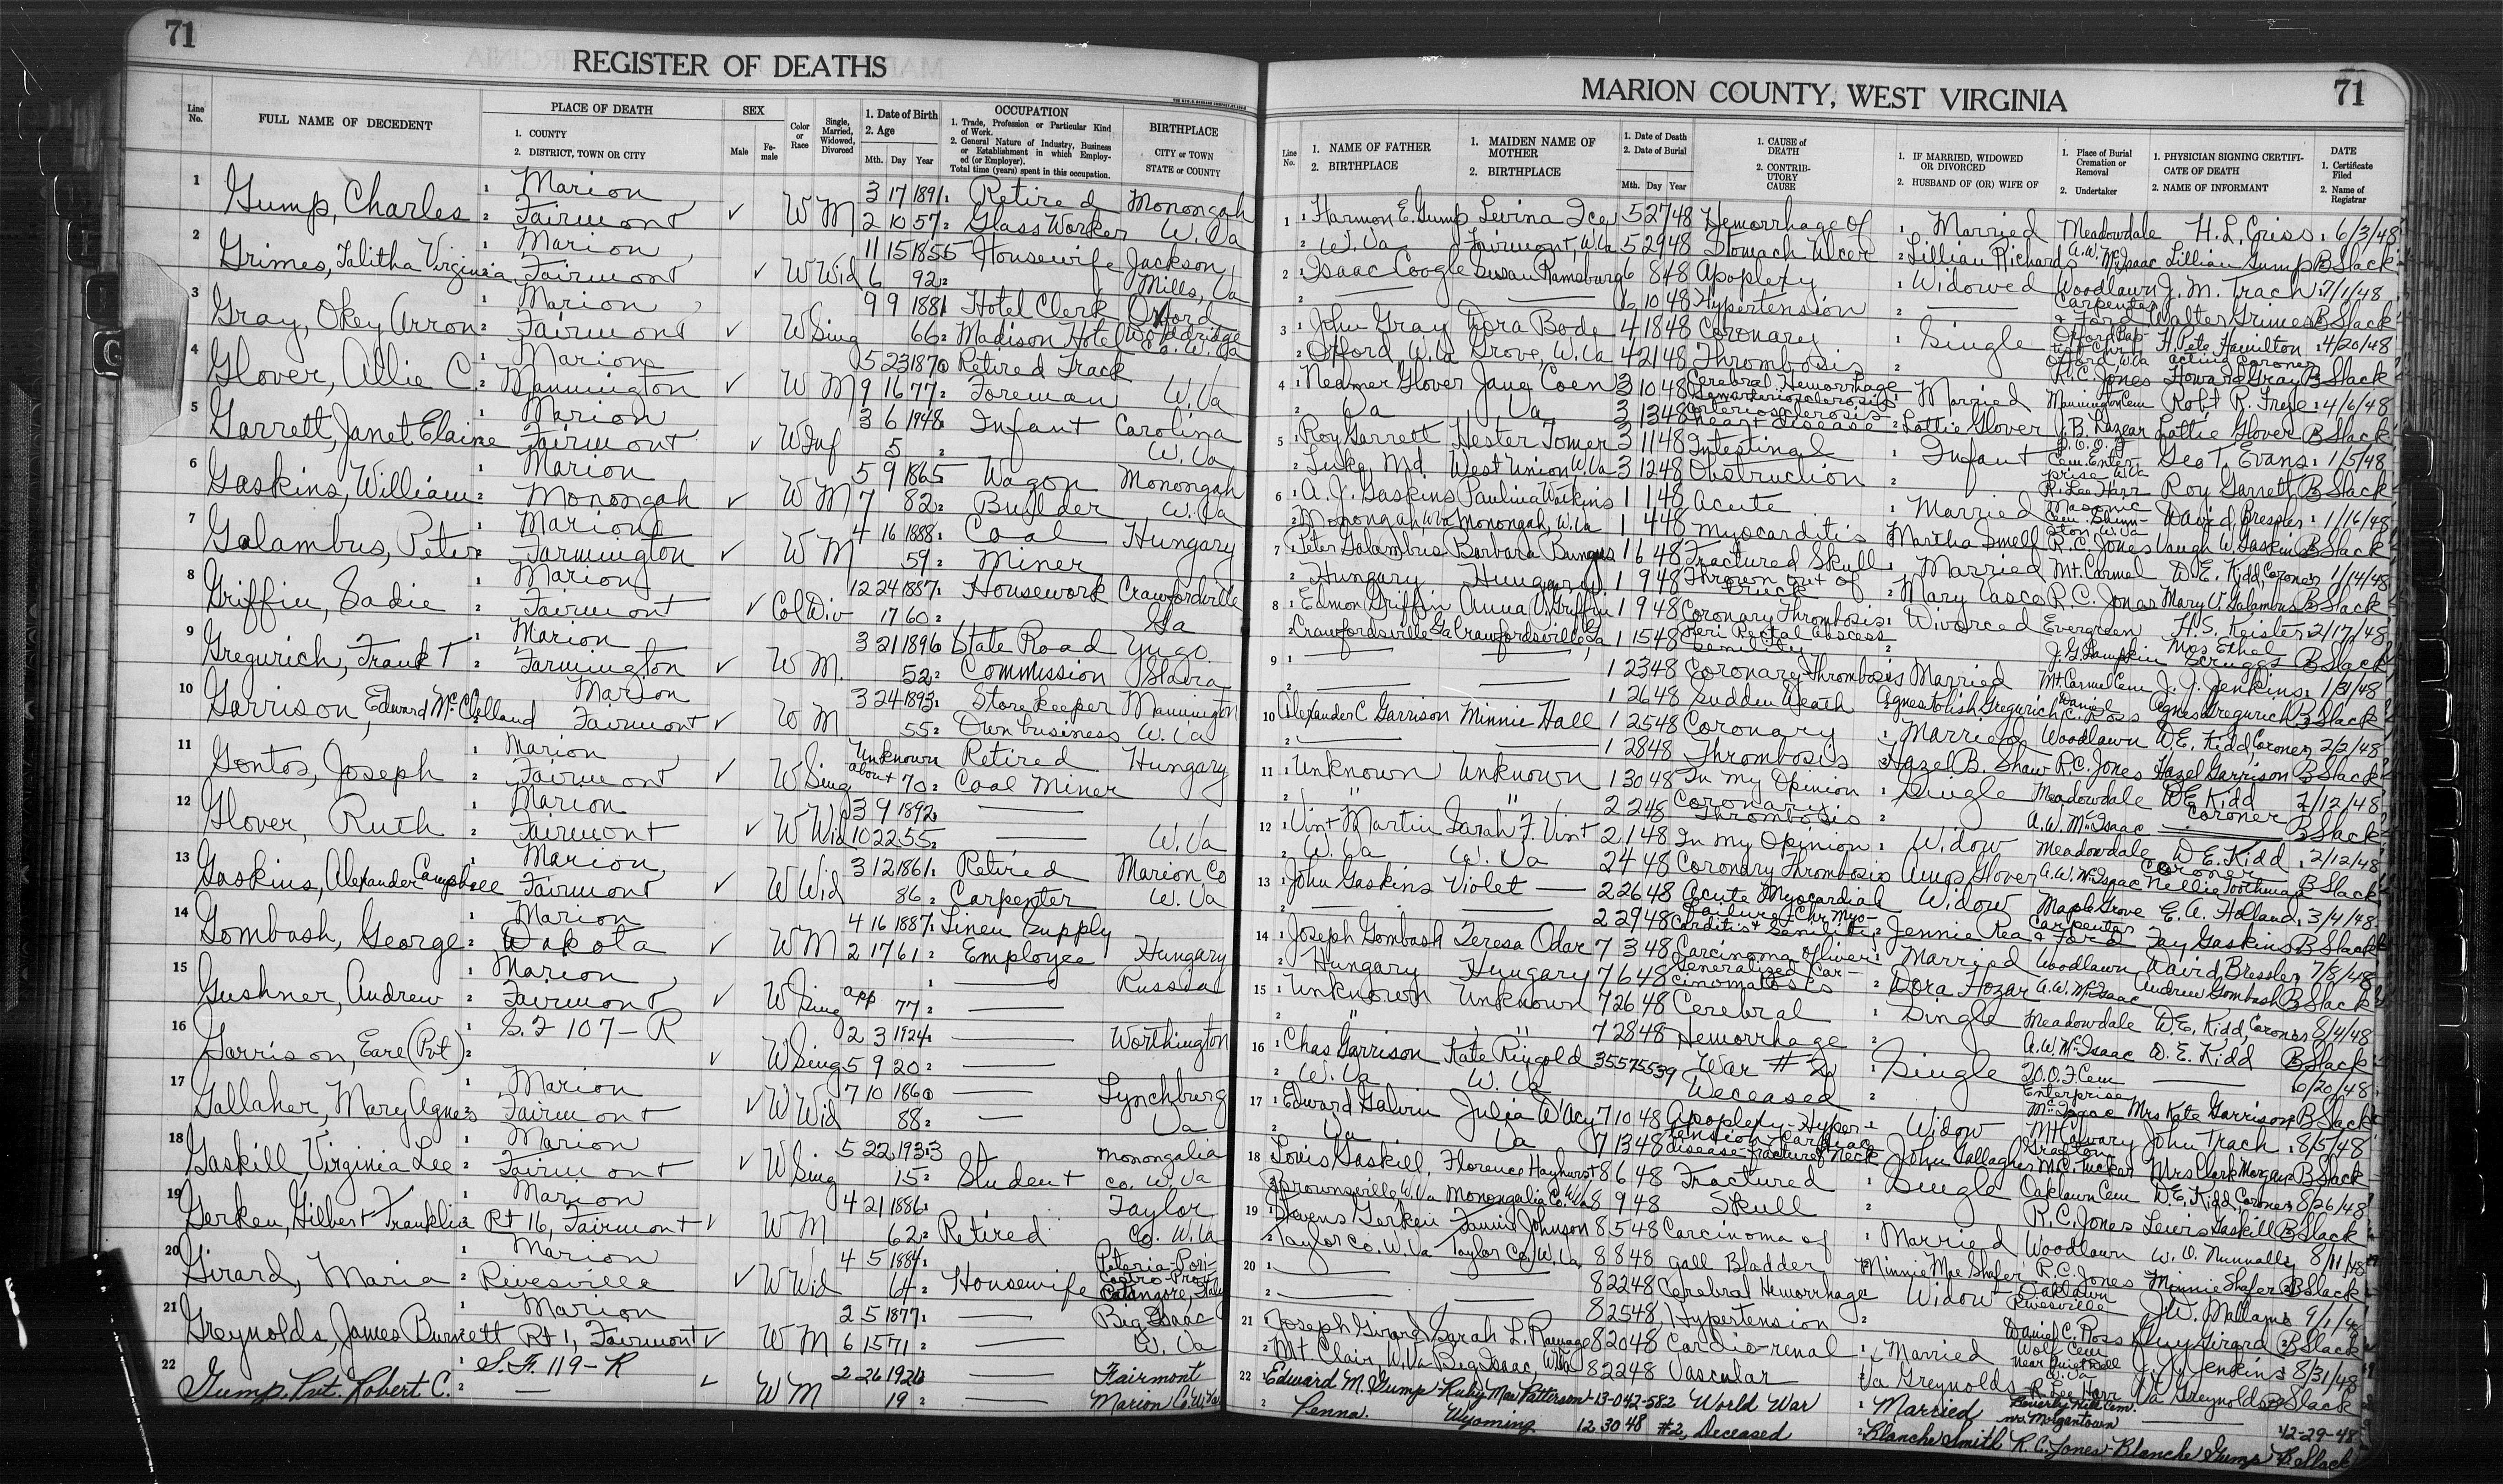 71
REGISTER OF DEATHS
Line No.
FULL NAME OF DECEDENT
PLACE OF DEATH
1. COUNTY
2. DISTRICT, TOWN OR CITY
SEX
Male
Female
Color or Race
Single, Married, Widowed, Divorced
1. Date of Birth
2. Age
Mth. Day Year
OCCUPATION
1. Trade, Profession or Particular Kind of Work.
2. General Nature of Industry, Business or Establishment in which Employed (or Employer).
Total time (years) spent in this occupation.
BIRTHPLACE
CITY or TOWN
STATE or COUNTY
1 1 Marion 3 17 1891 1. Retired Monongah
Gump, Charles 2 Fairmont ✓ W M 2 10 57 2. Glass Worker W. Va
2 1 Marion 11 15 1855 Housewife Jackson
Grimes, Talitha Virginia Fairmont ✓ W Wid 6 92 2. Mills, Va
3 1 Marion 9 9 1881 Hotel Clerk Oxford
Gray, Okey Arron 2. Fairmont ✓ W Sing 66 2. Madison Hotel Co. W. Va
4 1 Marion 5 23 1870 Retired Track
Glover, Allie C. 2. Mannington ✓ W M 9 16 77 2. Foreman W. Va
5 1 Marion 3 6 1948 Infant Carolina
Garrett, Janet Elaine Fairmont ✓ W Inf 5 2 W. Va
6 1 Marion 5 9 1865 Wagon Monongah
Gaskins, William 2 Monongah ✓ W M 7 82 2. Builder W. Va
7 1 Marion 4 16 1888 1. Coal Hungary
Galambus, Peter 2 Farmington ✓ W M 59 2. Miner
8 1 Marion 12 24 1887 1. Housework Crawfordville
Griffin, Sadie 2 Fairmont ✓ Col Div 17 60 2. Ga
9 1 Marion 3 21 1896 State Road Yugo
Gregurich, Frank T 2 Farmington ✓ W M. 52 2. Commission Slavia
10 Marion 3 24 1893 1. Storekeeper Mannington
Garrison, Edward McClelland Fairmont ✓ W M 55 2. Own business W. Va
11 1 Marion Unknown Retired Hungary
Gontos, Joseph 2 Fairmont ✓ W Sing about 70 2. Coal Miner
12 1 Marion 3 9 1892
Glover, Ruth 2 Fairmont ✓ W Wid 10 22 55 2. W. Va
13 1 Marion 3 12 1861 1. Retired Marion Co
Gaskins, Alexander Campbell Fairmont ✓ W Wid 86 2. Carpenter W. Va
14 1 Marion 4 16 1887 1. Linen Supply
Gombash, George 2 Dakota ✓ W M 2 17 61 2. Employee Hungary
15 1 Marion 1 Russia
Gushner, Andrew 2 Fairmont ✓ W Sing app 77 2
16 1 S.F 107-R 2 3 1924 1. Worthington
Garrison, Earl (Pvt) 2 ✓ W Sing 5 9 20 2
17 1 Marion 7 10 1860 Lynchburg
Gallaher, Mary Agnes Fairmont ✓ W Wid 88 2. Va
18 1 Marion 5 22 1933 Monongalia
Gaskill, Virginia Lee 2 Fairmont ✓ W Sing 15 2. Student Co. W. Va
19 1 Marion 4 21 1886 1. Taylor
Gerken, Gilbert Franklin Rt 16, Fairmont ✓ W M 62 2. Retired Co. W. Va
20 1 Marion 4 5 1884 1.
Girard, Maria 2 Rivesville ✓ W Wid 64 2. Housewife Italy
21 1 Marion 2 5 1877 1. Big Isaac
Greynolds, James Burnett Rt 1, Fairmont ✓ W M 6 15 71 2 W. Va
22 1 S.F. 119-R 2 26 1926 Fairmont
Gump, Pvt. Robert C. 2 ✓ W M 19 2 Marion Co. W. Va
MARION COUNTY, WEST VIRGINIA
71
Line No.
1. NAME OF FATHER
2. BIRTHPLACE
1. MAIDEN NAME OF MOTHER
2. BIRTHPLACE
1. Date of Death
2. Date of Burial
Mth. Day Year
1. CAUSE OF DEATH
2. CONTRIBUTORY CAUSE
1. IF MARRIED, WIDOWED OR DIVORCED
2. HUSBAND OF (OR) WIFE OF
1. Place of Burial Cremation or Removal
2. Undertaker
1. PHYSICIAN SIGNING CERTIFICATE OF DEATH
2. NAME OF INFORMANT
DATE
1. Certificate Filed
2. Name of Registrar
1 1 Harmon E. Gump Levina Ice 5 27 48 Hemorrhage of 1 Married Meadowdale H. L. Criss 1 6/3/48
2 W. Va Fairmont, W. Va 5 29 48 Stomach Ulcer 2 Lillian Richards A. W. McIsaac Lillian Gump B Slack
2 1 Isaac Coogle Susan Ramsburg 6 8 48 Apoplexy 1 Widowed Woodlawn J. M. Trach 7/1/48
2 6 10 48 Hypertension 2 Carpenter & Ford Walter Grimes B Slack
3 1 John Gray Dora Bode 4 18 48 Coronary 1 Single Oxford H. Pete Hamilton 4/20/48
2 Oxford, W. Va Grove, W. Va 4 21 48 Thrombosis 2 Acting Coroner R. C. Jones Howard Gray B Slack
4 1 Glover Jane Coen 3 10 48 Cerebral Hemorrhage 1 Married Mannington Cem Robt R. Frye 1 4/6/48
2 Va Va 3 13 48 Arteriosclerosis Heart disease 2 Lottie Glover Lottie Glover B Slack
5 1 Roy Garrett Hester Tomer 3 11 48 Intestinal 1 Infant I.O.O.F Cem. Enterprise W.Va Geo T. Evans 1/5/48
2 Md. West Union W. Va 3 12 48 Obstruction 2 R. Lee Harr Roy Garrett B Slack
6 1 A. J. Gaskins Paulina Watkins 1 1 48 Acute 1 Married Masonic Cem. David Bressler 1 1/16/48
2 Monongah, W Va Monongah, W. Va 1 4 48 Myocarditis Martha Smell R. C. Jones Vaugh W. Gaskins B Slack
7 1 Peter Galambus Barbara 1 6 48 Fractured Skull 1 Married Mt. Carmel D. E. Kidd, Coroner 1/14/48
2 Hungary Hungary 1 9 48 Thrown out of Truck 2 Mary Vasco R. C. Jones Mary V. Galambus B Slack
8 1 Edmon Griffin Anna V. Griffin 1 9 48 Coronary Thrombosis 1 Divorced Evergreen H. S. Keister 2/17/48
2 Crawfordsville Ga Crawfordsville, Ga 1 15 48 Peri Rectal Abscess Senility 2 J. G. Lampkin Mrs Ethel Scruggs B Slack
9 1 1 23 48 Coronary Thrombosis Married Mt Carmel Cem J. J. Jenkins 1 1/31/48
1 26 48 Sudden death Agnes Tolish Gregurich Daniel C. Ross Agnes Gregurich B Slack
10 Alexander C. Garrison Minnie Hall 1 25 48 Coronary 1 Married Woodlawn D. E. Kidd, Coroner 2/2/48
2 1 28 48 Thrombosis 2 Hazel B. Shaw R. C. Jones Hazel Garrison B Slack
11 1 Unknown Unknown 1 30 48 In my Opinion 1 Single Meadowdale D. E. Kidd 2/12/48
2 " " 2 2 48 Coronary Thrombosis 2 A. W. McIsaac Coroner B Slack
12 1 Vint Martin Sarah F. Vint 2 1 48 In my Opinion 1 Widow Meadowdale D. E. Kidd 2/12/48
2 W. Va W. Va 2 4 48 Coronary Thrombosis Amos Glover A. W. McIsaac Coroner Nellie Toothman B Slack
13 1 John Gaskins Violet 2 26 48 Acute Myocardial Widow Maple Grove E. A. Holland 1 3/4/48
2 2 29 48 Failure, Chr. Myocarditis + Senility 2 Jennie Rea Carpenter & Ford Fay Gaskins B Slack
14 1 Joseph Gombash Teresa Odar 7 3 48 Carcinoma of liver 1 Married Woodlawn David Bressler 7/8/48
2 Hungary Hungary 7 6 48 Generalized Carcinomatosis 2 Dora Hozar A. W. McIsaac Andrew Gombash B Slack
15 1 Unknown Unknown 7 26 48 Cerebral 1 Single Meadowdale D. E. Kidd, Coroner 8/4/48
2 " " 7 28 48 Hemorrhage 2 A. W. McIsaac D. E. Kidd B Slack
16 1 Chas Garrison Kate Ringold 35575539 War #2 1 Single I.O.O.F. Cem 6/20/48
2 W. Va W. Va Deceased 2 Enterprise McIsaac Mrs Kate Garrison B Slack
17 1 Edward Galvin Julia D'Acy 7 10 48 Apoplexy-Hyper- 1 Widow Mt Calvary John Trach 8/5/48
2 Va Va 7 13 48 tension-Cardiac disease-fracture neck John Gallagher Grafton Mrs Clark Morgan B Slack
18 1 Louis Gaskill, Florence Hayhurst 8 6 48 Fractured 1 Single Oaklawn Cem D. E. Kidd, Coroner 8/26/48
2 Brownsville, W. Va Monongalia Co. W. Va 8 9 48 Skull 2 R. C. Jones Lewis Gaskill B Slack
19 1 Gerken Fannie Johnson 8 5 48 Carcinoma of 1 Married Woodlawn W. O. Nunnally 8/11/48
2 Taylor Co. W. Va Taylor Co, W. Va 8 8 48 gall Bladder Minnie Mae Shafer R. C. Jones Minnie Shafer B Slack
20 1 8 22 48 Cerebral Hemorrhage Widow Oaklawn Rivesville 9/1/48
2 8 25 48 Hypertension 2 Daniel C. Ross Girard B Slack
21 1 Joseph Sarah L. Ramage 8 20 48 Cardio-renal 1 Married Wolf Cem J. J. Jenkins 8/31/48
2 Mt Clair, W. Va Big Isaac, W Va 8 22 48 Vascular Va Greynolds R. Lee Harr Va Greynolds B Slack
22 1 Edward M. Gump Ruby Mae Patterson 13-042-582 World War 1 Married Beverly Hill Cem. nr. Morgantown 12-29-48
2 Penna. Wyoming 12 30 48 #2, Deceased 2 Blanche Smith R. C. Jones Blanche Gump B. Slack